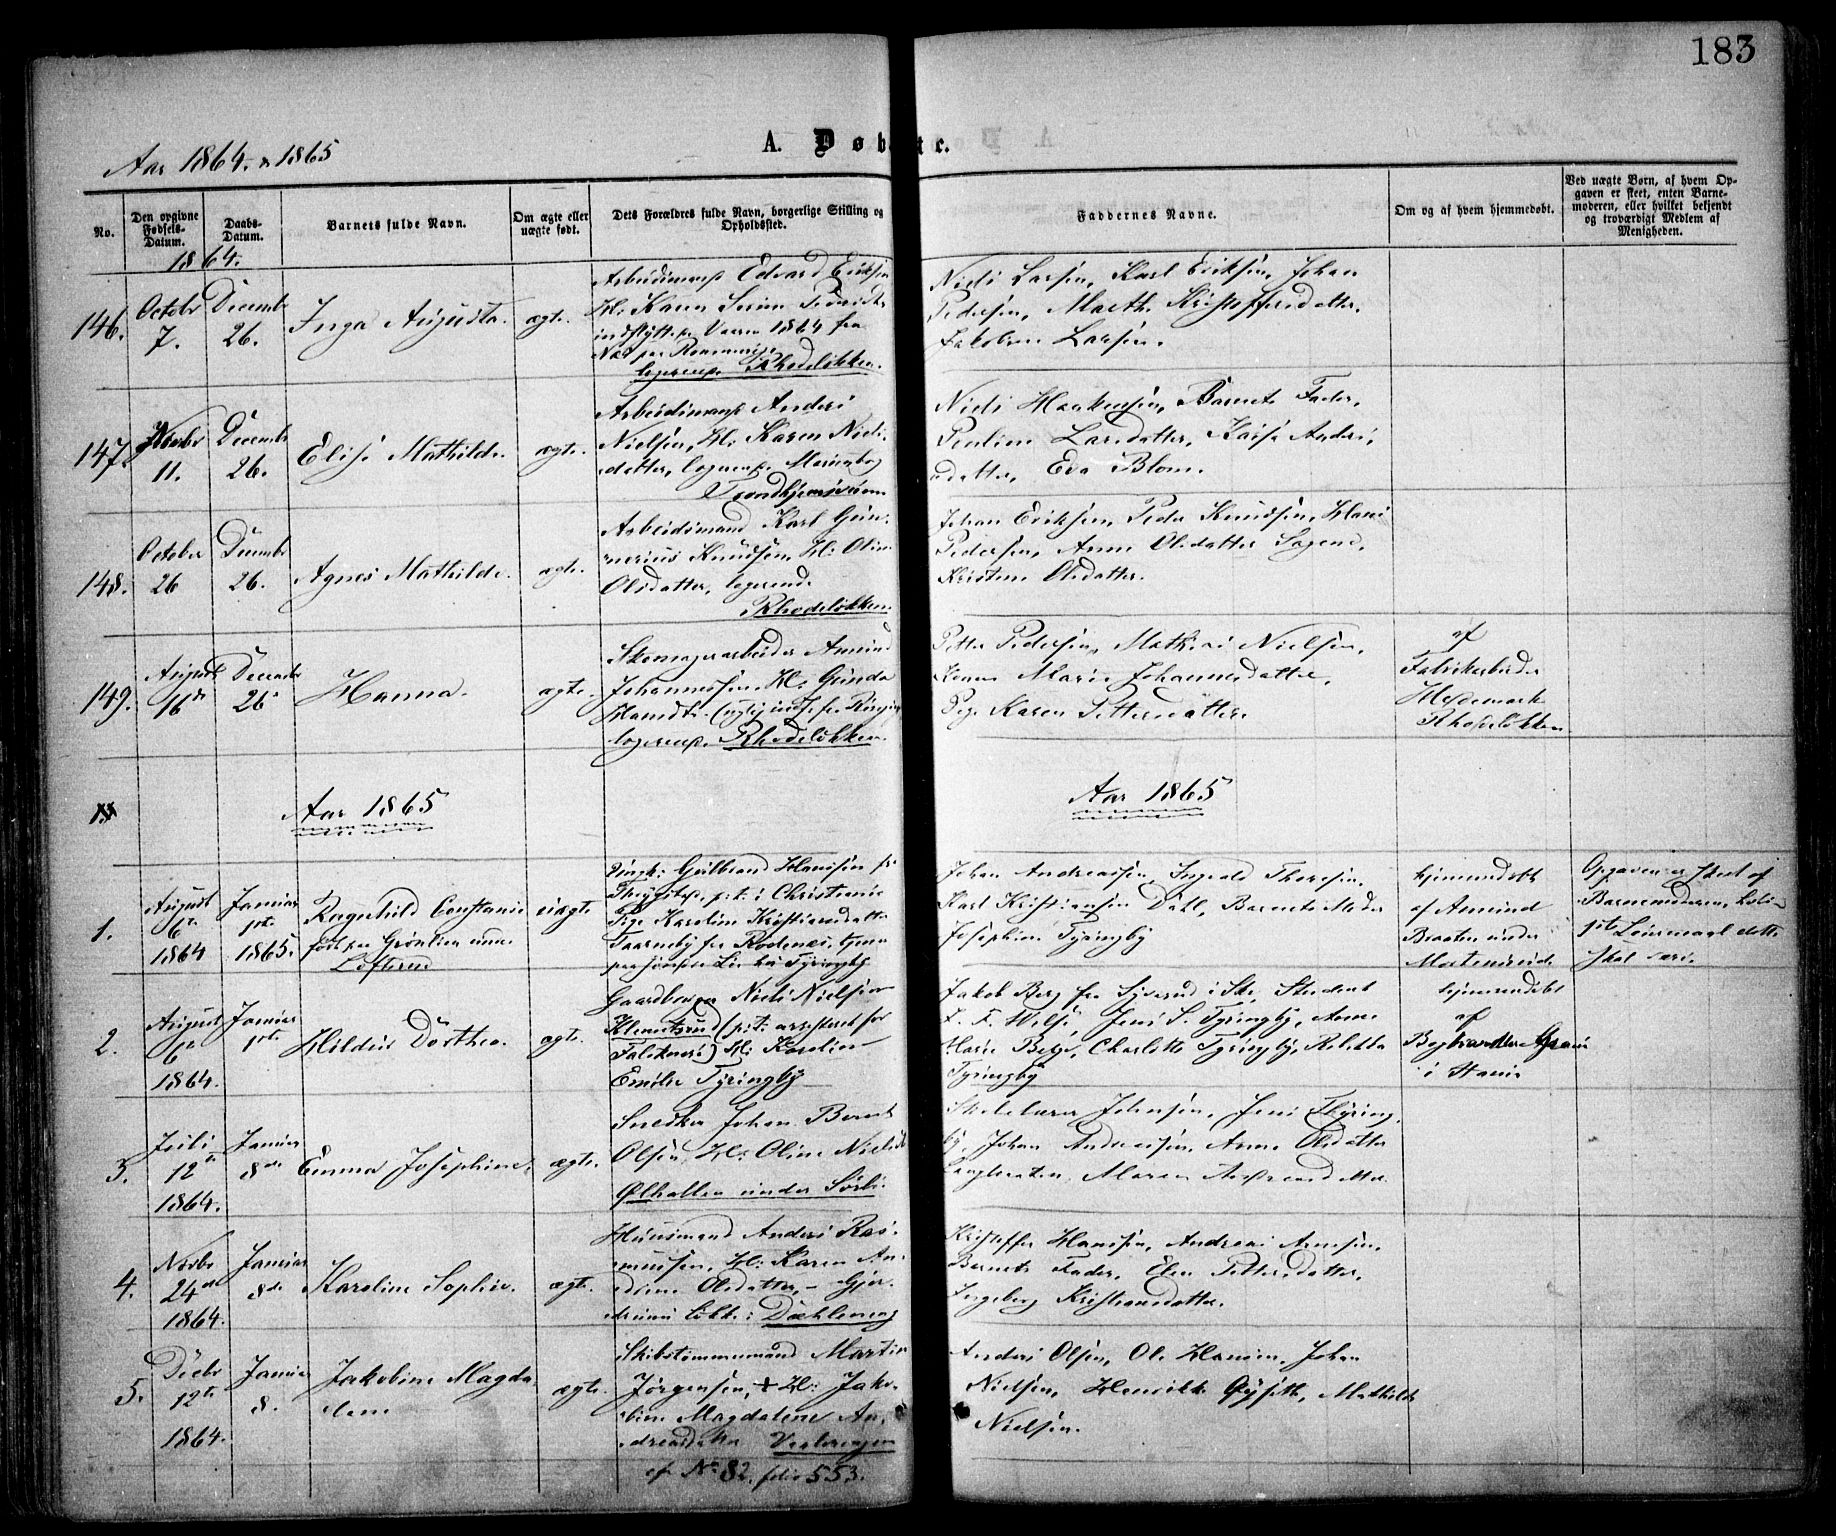 183
Aar 1864. & 1865
A. Døbte.
No.
Den opgivne Fødsels-Datum.
Daabs-Datum.
Barnets fulde Navn.
Om ægte eller uægte født.
Dets Forældres fulde Navn, borgerlige Stilling og Opholdssted.
Faddernes Navne.
Om og af hvem hjemmedøbt.
Ved uægte Børn, af hvem Opgaven er skeet, enten Barnemoderen, eller hvilket bekjendt og troværdigt Medlem af Menigheden.
1864.
146.
October 7.
Decembr 26.
Inga Augusta.
ægte.
Arbeidsmand Edvard Eriksen
H: Karen
indflyttet Vaaren 1864 fra
Næs paa Romerige
logerende Rhodeløkken.
Niels Larsen, Karl Eriksen, Johan
Pedersen, Marthe Kristoffersdatter,
Jakobine Larsen.
147.
Novbr 11.
Decembr 26.
Elise Mathilde.
ægte.
Arbeidsmand Anders
Nielsen, H: Karen Niels-
datter, logerende Marienborg
Trondhjemsveien
Niels Haakensen, Barnets Fader,
Pauline Larsdatter, Kaisa Anders-
datter, Eva Blom.
148.
October 26
Decembr 26.
Agnes Mathilde.
ægte.
Arbeidsmand Karl Gun-
nerius Knudsen, H: Oline
Olsdatter, logerende
Rhodeløkken
Johan Eriksen, Peder Knudsen, Hans
Pedersen, Anne Olsdatter Sagene,
Kristine Olsdatter.
149.
August 16de
December 26
Hanna.
ægte.
Skomagerarbeider Amund
Johannessen, H: Gunda
logerende Rhodeløkken
Petter Pedersen, Mathias Nielsen,
Marie Johannesdatter,
Pige Karen Pettersdatter.
af
Fabrikarbeider
Hedemark
Rhodeløkken
Aar 1865
Aar 1865
1.
August 6te 1864
Januar 1ste 1865.
Ragnhild Constanse
født paa Grønlien under
Lofterud
uægte
Ungk: Gulbrand Hansen fr
Trøgstad p: t: i Christiania
Pige Karoline Kristiansdatter
Taarneby fra Rødenæs, tjener
Tyringby
Johan Andreassen, Ingvald Thoresen,
Karl Kristiansen Dahl, Barnets Moder
Josephine Tyringby
hjemmedøbt
af Amund
Braaten under
Opgaven er skeet af
Barnemoderen,
1ste Leiermaal dette
skal være.
2.
August 6te 1864.
Januar 1ste
Hildur Dorthea.
ægte.
Gaardbruger Niels Nielsen
Klemetsrud (p: t: arresteret for
Falskneri) H: Karoline
Emilie Tyringby
Jakob Berg fra Syverud i Ski, Student
Jens S. Tyringby, Anne
Marie Berg, Charlotte Tyringby,
Tyringby
hjemmedøbt
af
3.
Juli 12te 1864.
Januar 8de
Emma Josephine.
ægte.
Snedker Johan Bernt
Olsen, H: Oline Nielsdt
Ølhallen under Sørli
Skolelærer Johnsen, Jens Thyring-
by, Johan Andreassen, Anne Olsdatter
Langbraaten, Maren
4.
Novbr 24de 1864.
Januar 8de
Karoline Sophie.
ægte.
Huusmand Anders Ras-
mussen, H: Karen An-
drine Olsdatter, – Gjer-
drums Løkke: Dæhleneng
Kristoffer Hansen, Andreas Arnesen,
Barnets Fader, Elen Pettersdatter,
Ingeborg Kristiansdatter.
5.
Decbr 12te 1864.
Januar 8.
Jakobine Magda-
lene
ægte.
Skibstømmermand Martin
Jørgensen, + H: Jako-
bine Magdalene An-
dreasdatter
cf. No 82. folio 553.
Anders Olsen, Ole Hansen, Johan
Nielsen, Henrik Gysth, Mathilde
Nielsen.